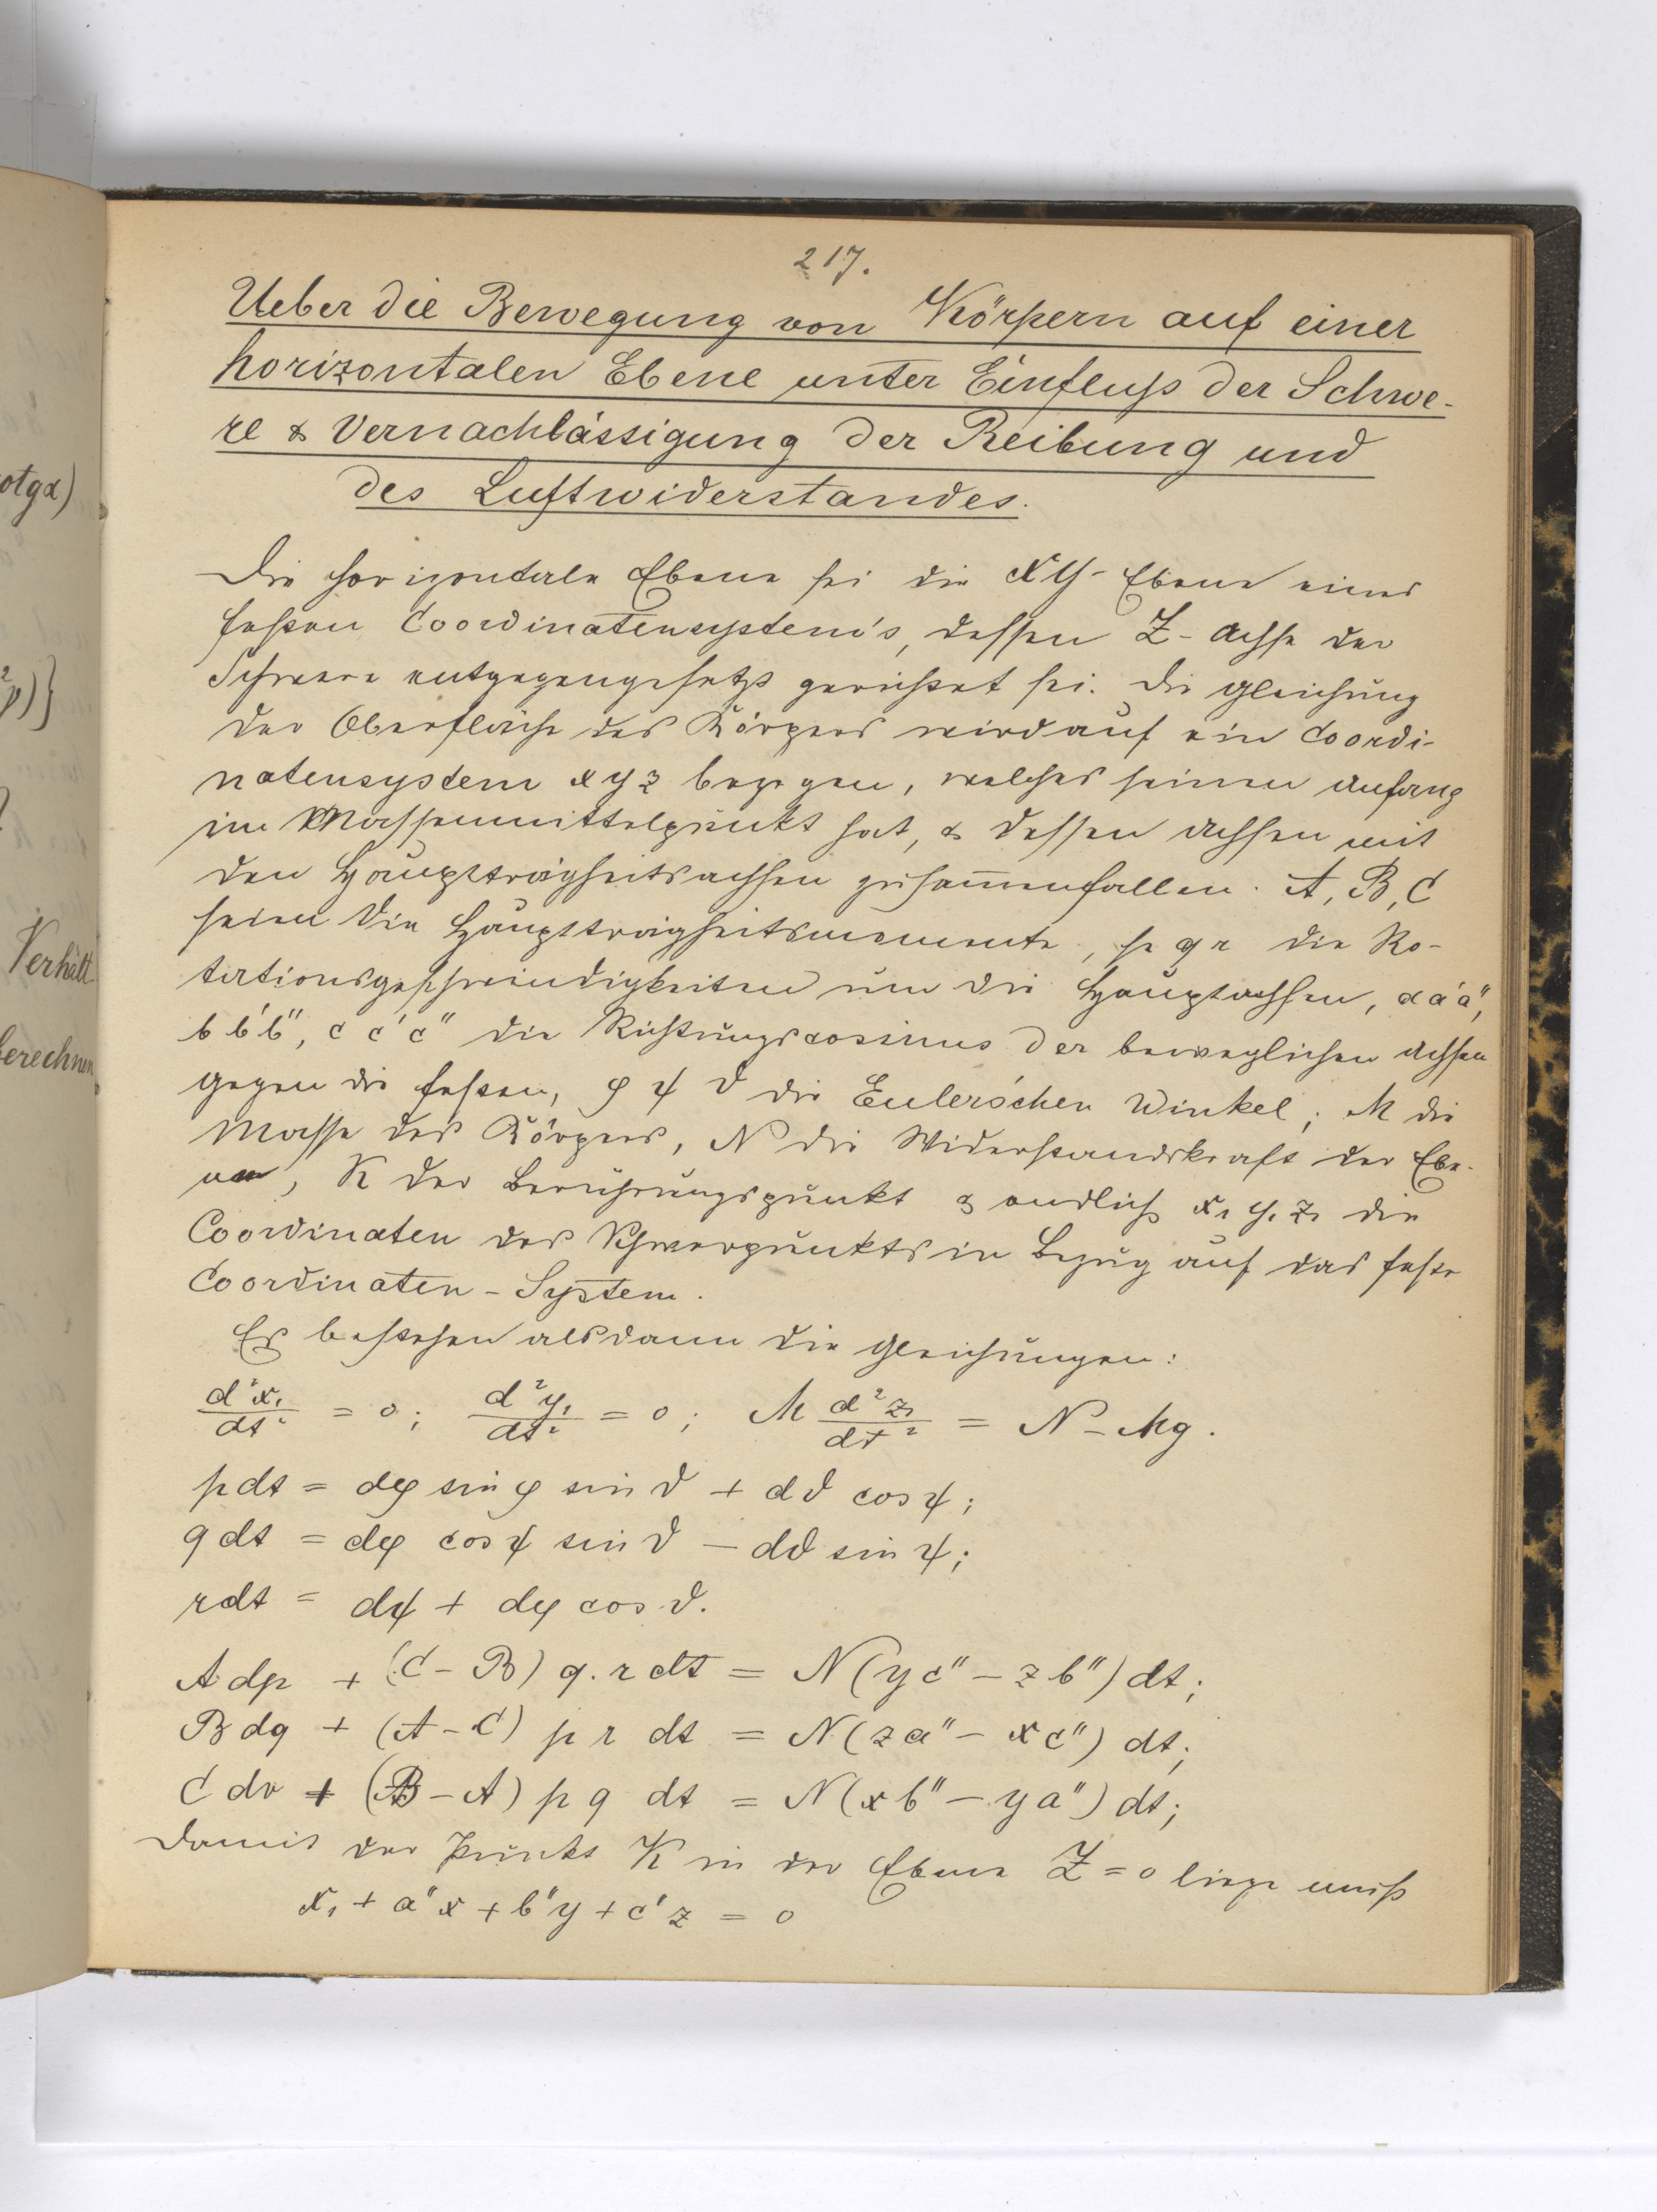 217.
Ueber die Bewegung von Körpern auf einer
horizontalen Ebene unter Einfluß der Schwe-
re & Vernachlässigung der Reibung und
des Luftwiderstandes.
Die horizontale Ebene sei die XY-Ebene eines
festen Coordinatensystem's, dessen Z-Achse der
Schwere entgegengesetzt gerichtet sei. Die Gleichung
der Oberfläche des Körpers wird auf ein Coordi-
natensystem x y z bezogen, welches seinen Anfang
im Massenmittelpunkt hat, & dessen Achsen mit
den Hauptträgheitsachsen zusam̅enfallen. A, B, C
seien die Hauptträgheitsmomente, p q r die Ro-
tationsgeschwindigkeiten um die Hauptachsen, a a' a",
b b' b", c c' c" die Richtungscosinus der beweglichen Achsen
gegen die festen, φ ψ ϑ die Euler'schen Winkel; M die
Masse des Körpers, N die Widerstandskraft der Ebe-
ne, K der Berührungspunkt & endlich x₁ y₁ z₁ die
Coordinaten des Schwerpunkts in Bezug auf das feste
Coordinaten-System.
Es bestehen alsdann die Gleichungen:
d²x₁/dt² = 0; d²y₁/dt² = 0; M d²z₁/dt² = N - Mg.
pdt = dφ sin φ sin ϑ + dϑ cos ψ;
qdt = dφ cos ψ sin ϑ - dϑ sin ψ;
rdt = dψ + dφ cos ϑ.
A dp + (C - B) q. r dt = N (y c" - z b") dt;
B dq + (A - C) p r dt = N (z a" - x c") dt;
C dr + (B - A) p q dt = N (x b" - y a") dt;
Damit der Punkt K in der Ebene Z = 0 liege muß
x₁ + a"x + b"y + c'z = 0
otgα)
²p)}
Verhält
berechnen